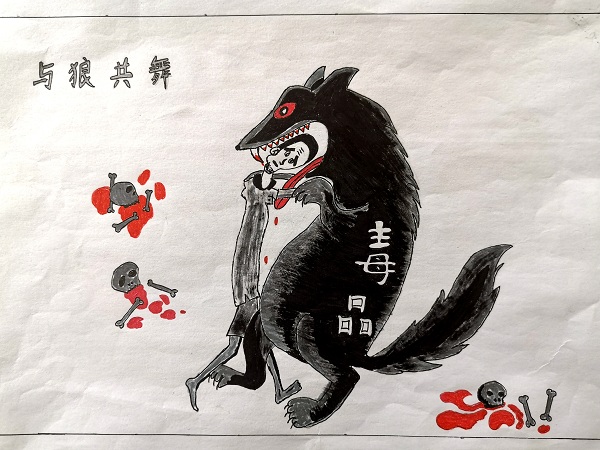 与狼共舞
毒品